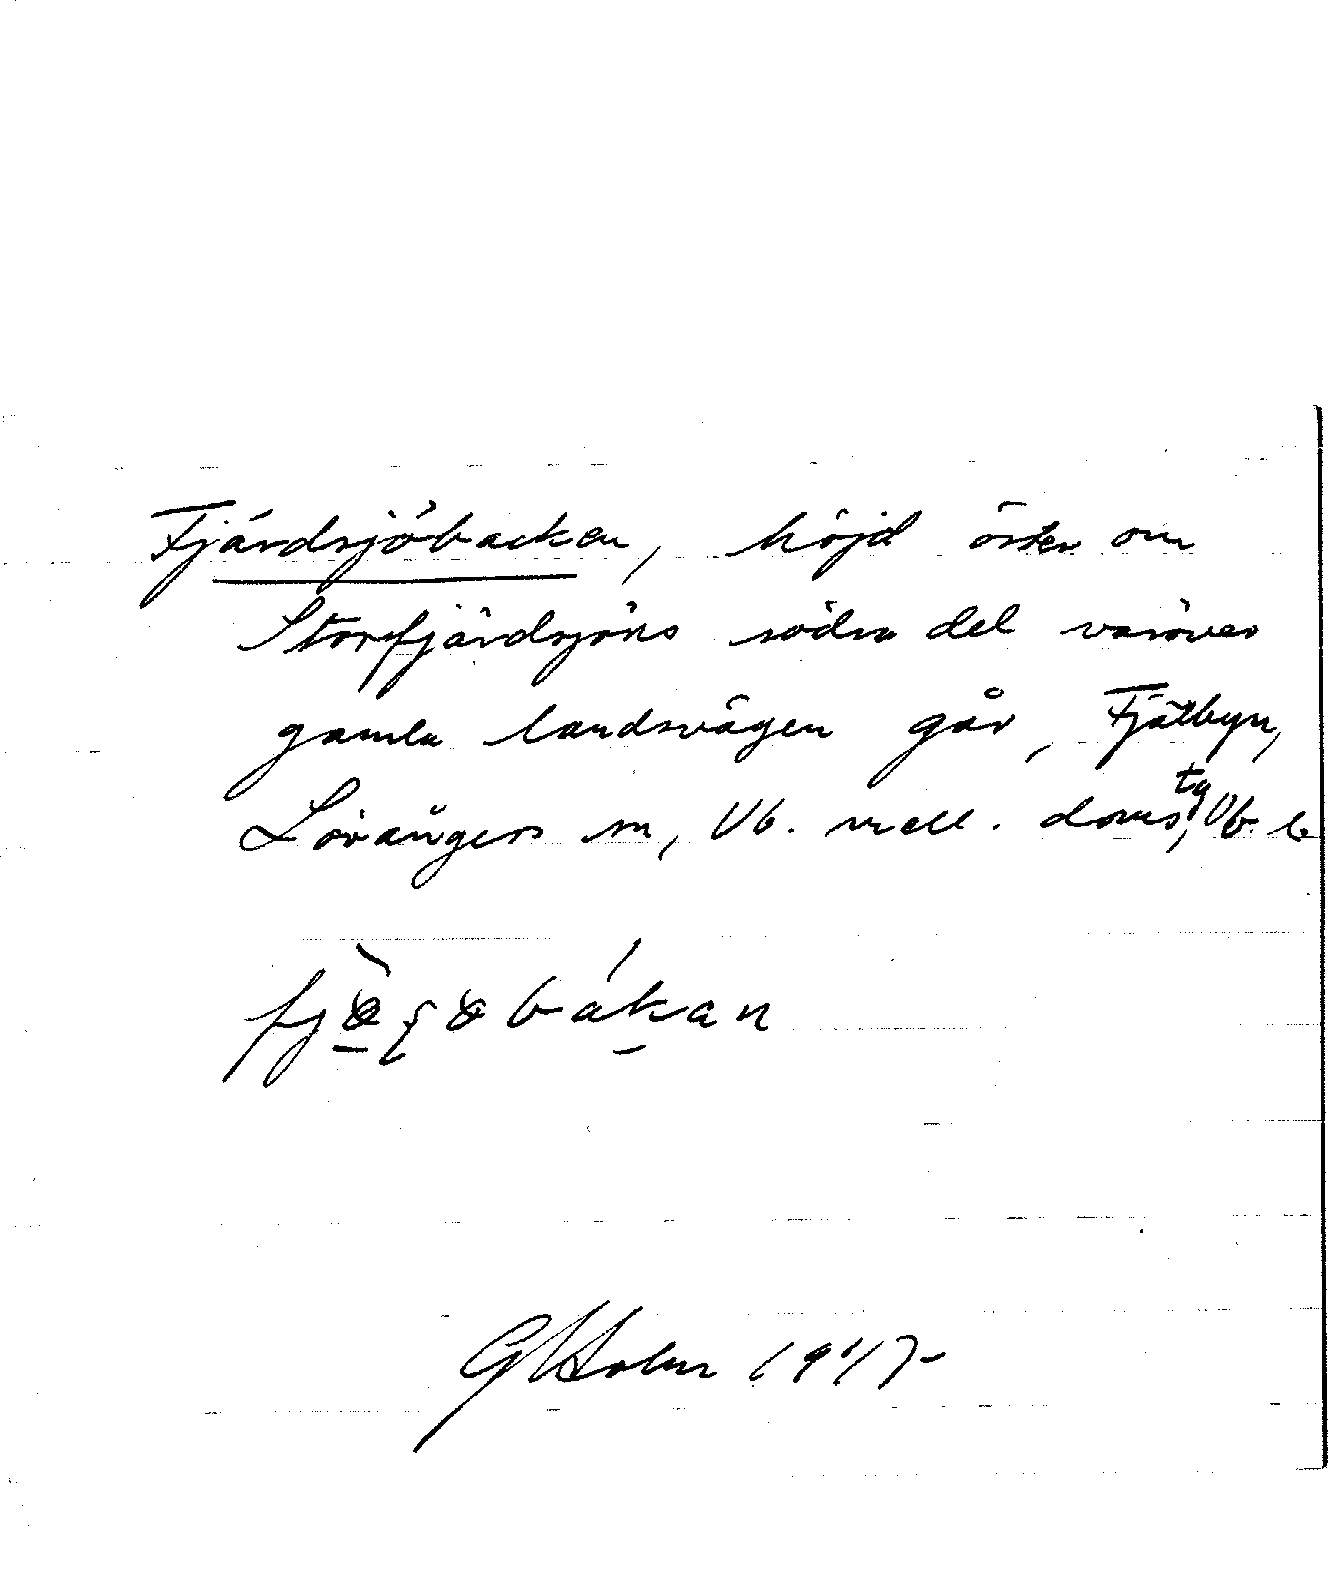 Fjärdsjöbacken, höjd öster om
Storfjärdsjöns södra del varöver
gamla landsvägen går, Fjälbyn,
Lövångers sn, Vb. mell. doms, tg Vb l.
GHolm 1947